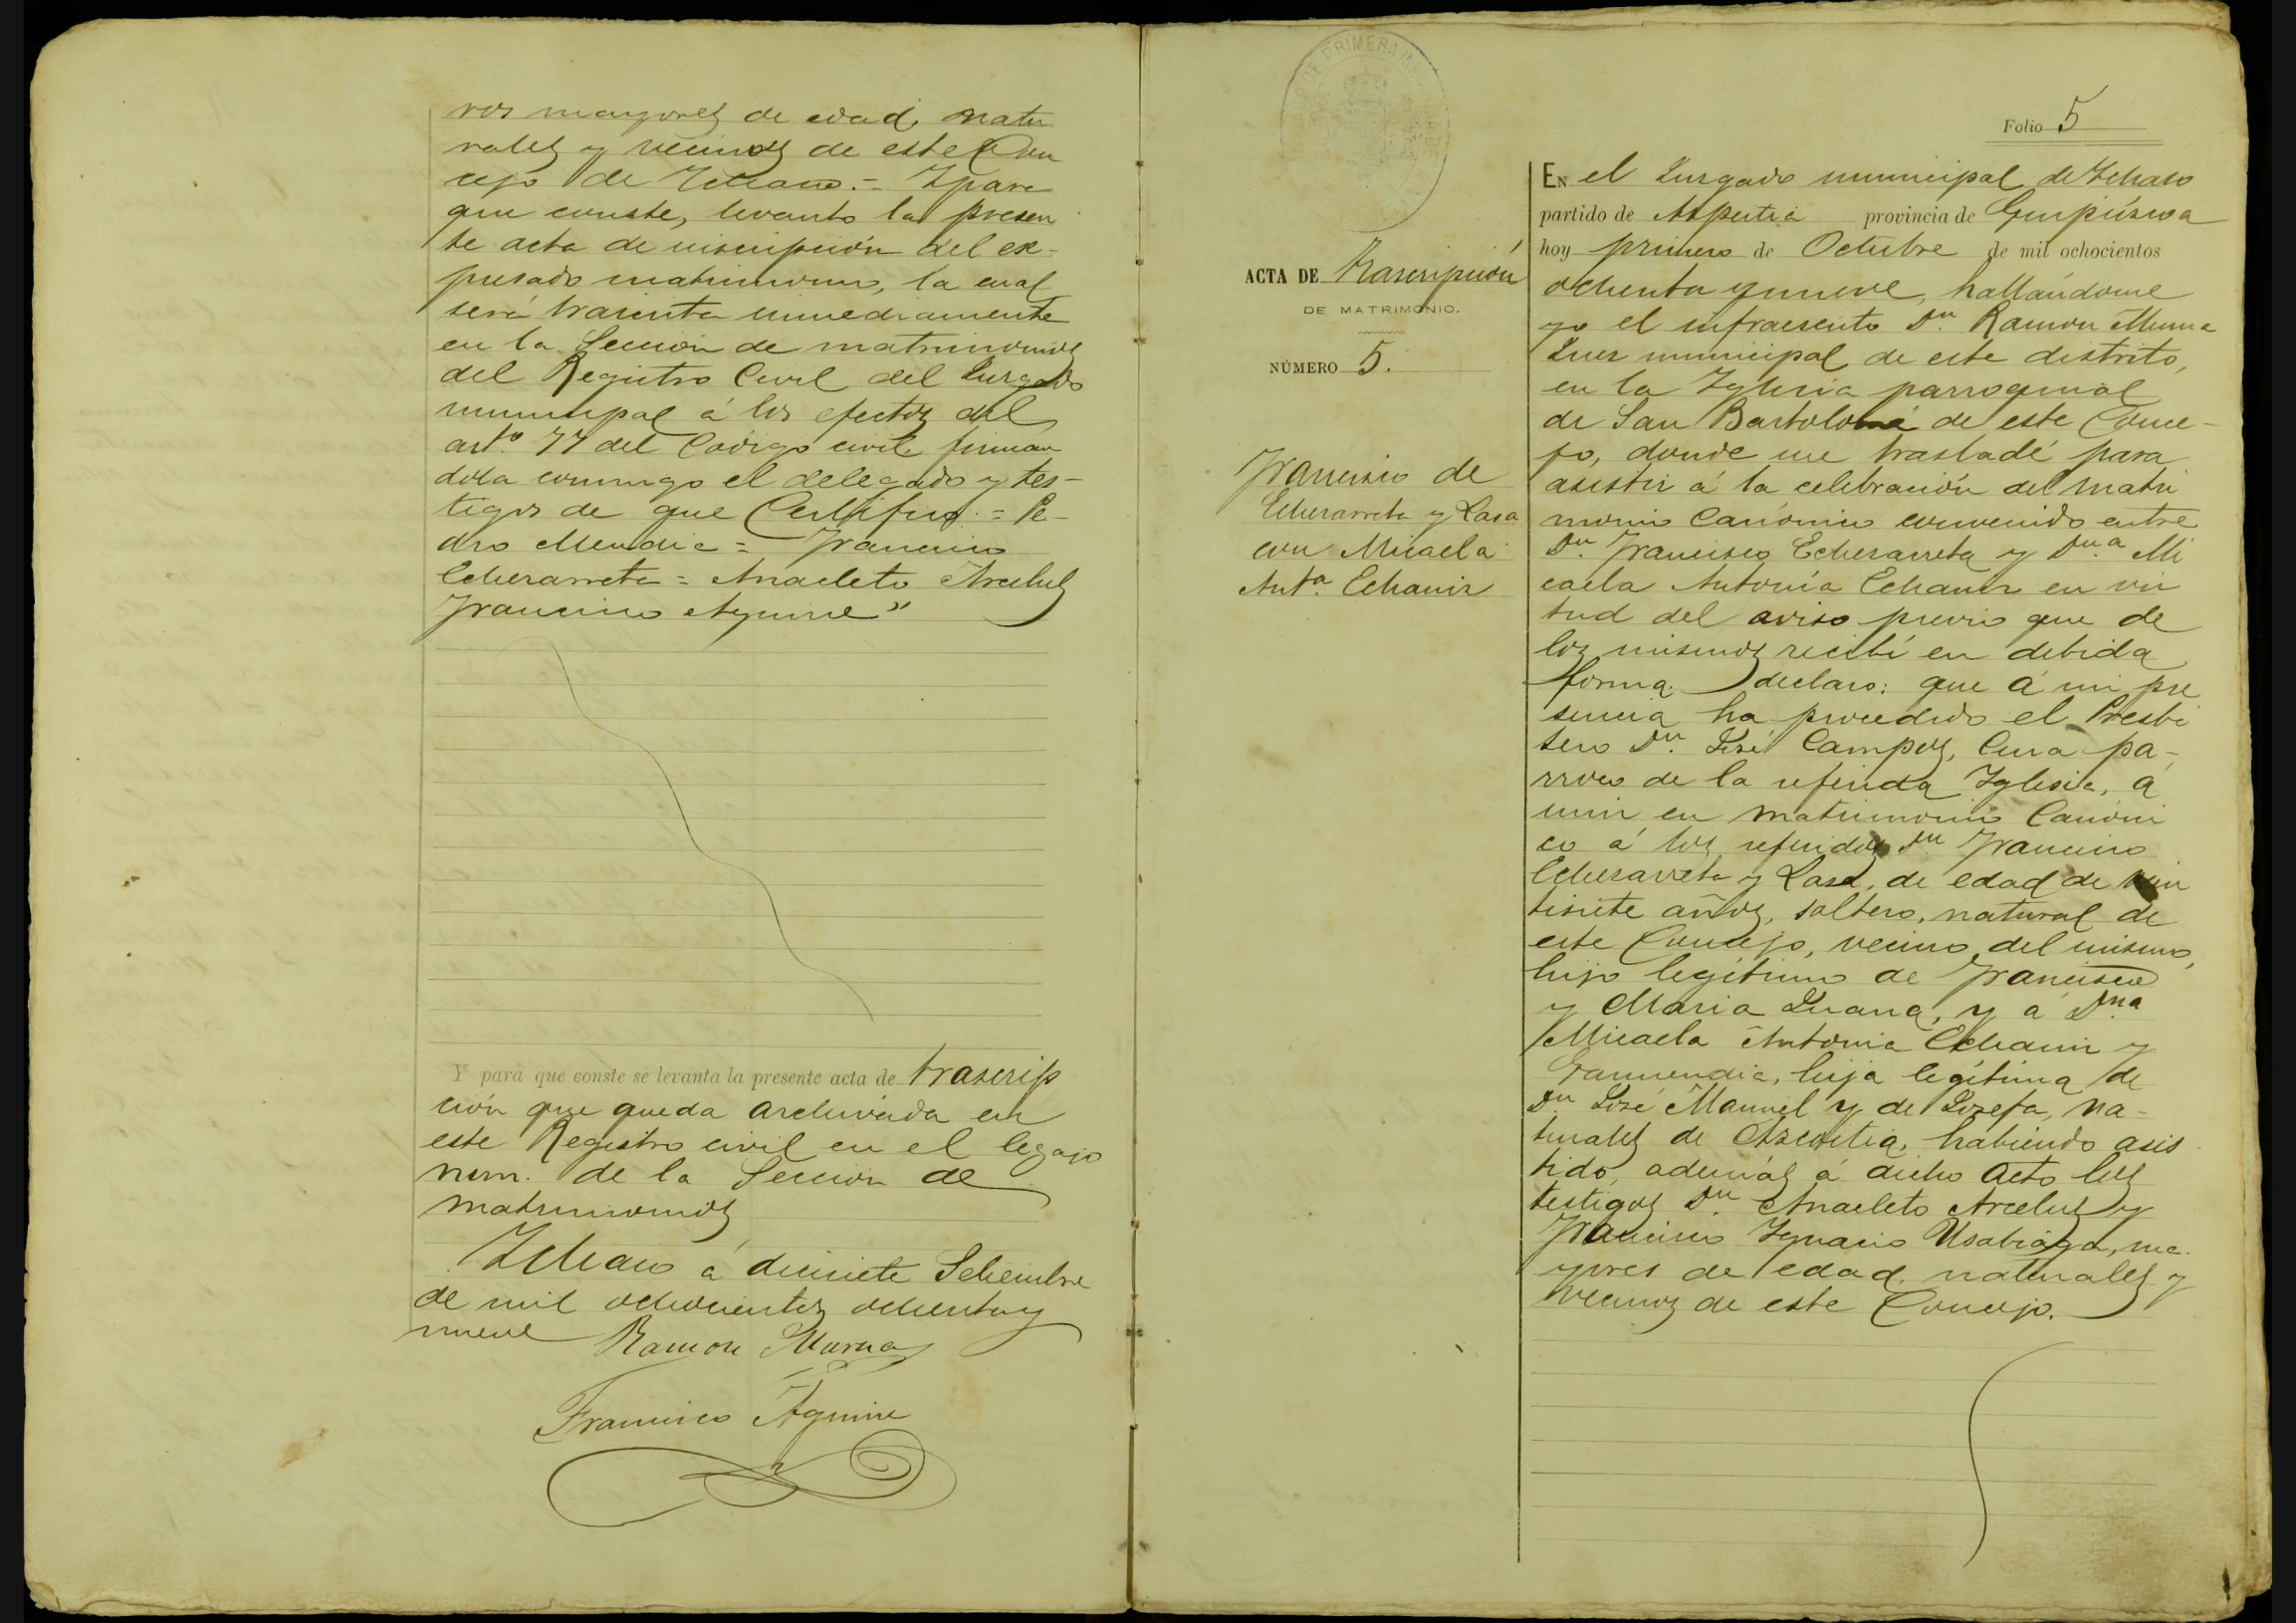 ros mayores de edad, natu
rales y vecinos de este Con
cejo de Ichaso.= Y para
que conste, levanto la presen
te acta de inscripción del ex-
presado matrimonio, la cual
será trascrita inmediatamente
en la Sección de matrimonios
del Registro Civil del Juzgado
municipal á los efectos del
artº 77 del Código civil, firman
dola conmigo el delegado y tes-
tigos de que Certifico.= Pe-
dro Mendia = Francisco
Echezarreta = Anacleto Arcelus
Francisco Aguirre"
Y para que conste se levanta la presente acta de trascrip
ción que queda archivada en
este Registro civil en el legajo
num. de la Sección de
matrimonios
Ichaso á diecisiete Setiembre
de mil ochocientos ochenta y
nueve Ramon Murua
Francisco Aguirre
DE PRIMERA INS
Folio 5
ACTA DE Trascripción
DE MATRIMONIO.
NÚMERO 5.
Francisco de
Echezarreta y Lasa
con Micaela
Antª Echaniz
EN el Juzgado municipal de Ichaso
partido de Azpeitia provincia de Guipúzcoa
hoy primero de Octubre de mil ochocientos
ochenta y nueve, hallándome
yo el infraescrito Dn Ramon Murua
Juez municipal de este distrito,
en la Yglesia parroquial
de San Bartolomé de este Conce-
jo, donde me trasladé para
asistir á la celebración del matri
monio Canónico convenido entre
Dn Francisco Echezarreta y Dnª Mi
caela Antonia Echaniz en vir
tud del aviso previo que de
los mismos recibí en debida
forma. declaro: que á mi pre
sencia ha procedido el Presbi
tero Dn José Campos, Cura pa-
rroco de la referida Yglesia, á
unir en matrimonio Canóni
co á los referidos Dn Francisco
Echezarreta y Lasa, de edad de vein
tisiete años, soltero, natural de
este Concejo, vecino del mismo,
hijo legítimo de Francisco
y Maria Juana, y á Dna
Micaela Antonia Echaniz y
Garmendia, hija legítima de
Dn José Manuel y de Josefa, na-
turales de Azcoitia, habiendo asis
tido, además á dicho acto los
testigos Dn Anacleto Arcelus y
Francisco Ygnacio Usabiaga, ma-
yores de edad, naturales y
vecinos de este Concejo.